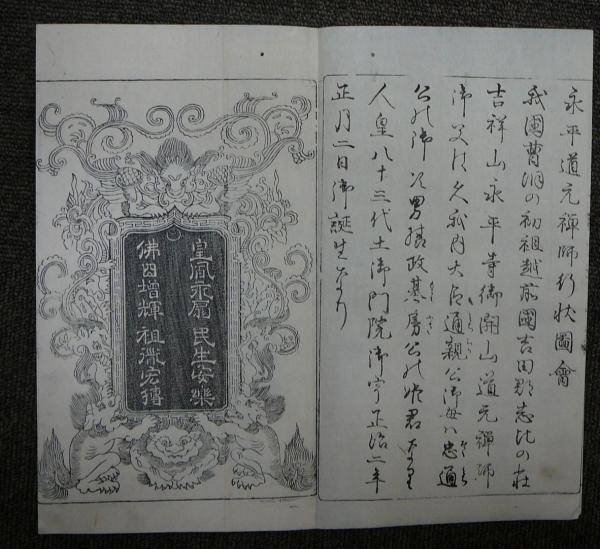 永平道元禅師行状圖會
我國曹洞の初祖越前國吉田郡志比の荘
吉祥山永平寺御開山道元禅師
御父は久我内大臣通親公御母ハ忠通
公の御次男摂政基房公の姫君なり
人皇八十三代土御門院御宇正治二年
正月二日御誕生なり
皇風永扇 民生安樂
佛日増輝 祖徽宏傳